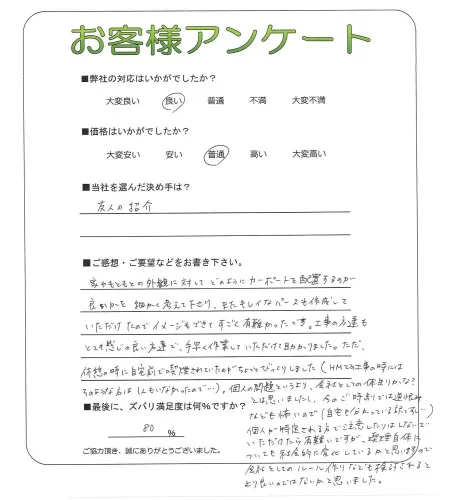 お客様アンケート
■弊社の対応はいかがでしたか?
大変良い 良い 普通 不満 大変不満
■価格はいかがでしたか?
大変安い 安い 普通 高い 大変高い
■当社を選んだ決め手は?
友人の紹介
■ご感想・ご要望などをお書き下さい。
家やもともとの外観に対してどのようにカーポートを配置するのが
良いかを細かく考えて下さり、またキレイなパースも作成して
いただけたのでイメージもできてすごく有難かったです。工事の方達も
とても感じの良い方達で、手早く作業していただけて助かりました。ただ、
休憩の時に自宅前で喫煙されていたのがちょっとびっくりしました(HMでの工事の時には
そのような方は1人もいなかったので…)。個人の問題というより、会社としての体制かな?
とは思いましたし、今のご時勢では逆恨み
なども怖いので(自宅も分かっている訳ですし…)
個人が特定される方で注意したりはしないで
いただけたら有難いですが、喫煙自体に
ついても社会的に変化しているかと思いますので
会社としてのルール作りなども検討されると
より良いのではないかと思いました。
■最後に、ズバリ満足度は何%ですか?
80 %
ご協力頂き、誠にありがとうございました。